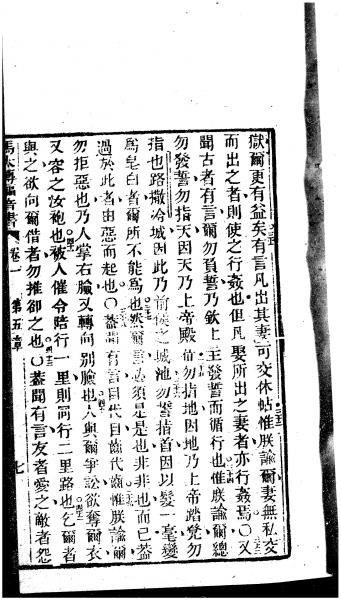 獄爾更有益矣有言凡出其妻可交休帖惟朕諭爾妻無私交
而出之者則使之行姦也但凡娶所出之妻者亦行姦焉〇又
聞古者有言爾勿負誓乃欽上主發誓而循行也惟朕諭爾總
勿發誓勿指天因天乃上帝殿勿指地因地乃上帝踏凳勿
指也路撒冷城因此乃前侯之城池勿誓指首因以髮一毫變
爲皂白者爾所不能爲也然爾言必須是是也非非也而已蓋
過於此者由惡而起也〇蓋聞有言目代目齒代齒惟朕諭爾
勿拒惡也乃人掌右臉又轉向別臉也人與爾爭訟欲奪爾衣
又容之汝袍也被人催令陪行一里則同行二里路也乞爾者
與之欲向爾借者勿推卻之也〇蓋聞有言友者愛之敵者怨
馬太傳福音書 卷一 第五章 七